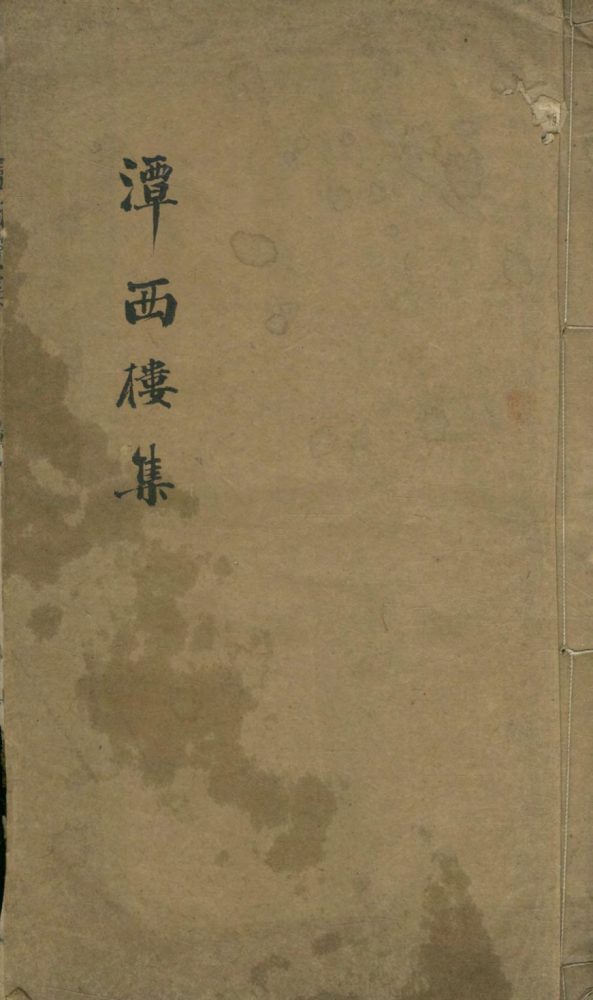 潭西樓集